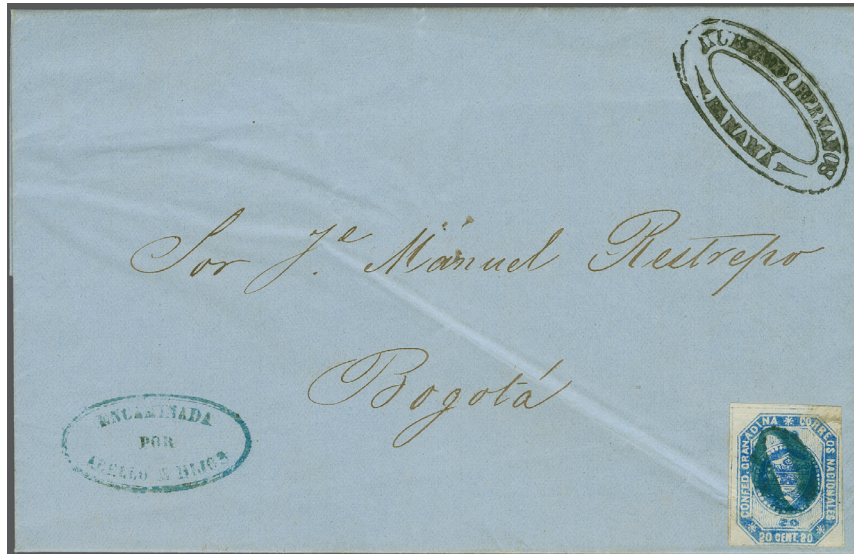 HERMANOS
PANAMÁ
Sor J.ª Mänuel Restrepo
Bogotá
ENCAMINADA
POR
ABELLO É HIJOS
CONFED. GRANADINA
CORREOS NACIONALES
20
20 CENT. 20